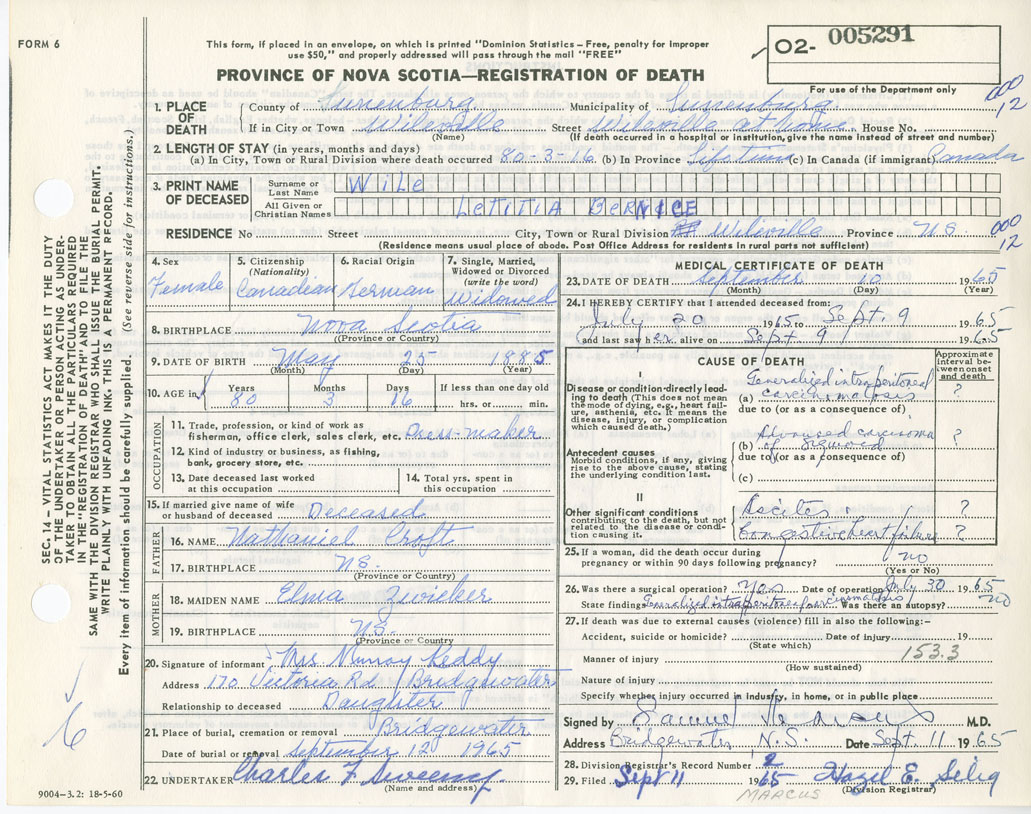 FORM 6
This form, if placed in an envelope, on which is printed "Dominion Statistics – Free, penalty for improper
use $50," and properly addressed will pass through the mail "FREE"
O2- 005291
For use of the Department only
PROVINCE OF NOVA SCOTIA—REGISTRATION OF DEATH
000
12
1. PLACE OF DEATH County of Lunenburg Municipality of Lunenburg
If in City or Town Wileville Street Wileville at home House No.
(Name) (If death occurred in a hospital or institution, give the name instead of street and number)
2. LENGTH OF STAY (in years, months and days)
(a) In City, Town or Rural Division where death occurred 80-3-16 (b) In Province Lifetime (c) In Canada (if immigrant) Canada
3. PRINT NAME OF DECEASED Surname or Last Name Wile
All Given or Christian Names LETITIA BERNICE
RESIDENCE No. Street City, Town or Rural Division Wileville Province NS
000
12
(Residence means usual place of abode. Post Office Address for residents in rural parts not sufficient)
4. Sex Female
5. Citizenship (Nationality) Canadian
6. Racial Origin German
7. Single, Married, Widowed or Divorced (write the word) Widowed
8. BIRTHPLACE Nova Scotia
(Province or Country)
9. DATE OF BIRTH May 25 1885
(Month) (Day) (Year)
10. AGE in Years 80 Months 3 Days 16 If less than one day old hrs. or min.
OCCUPATION
11. Trade, profession, or kind of work as fisherman, office clerk, sales clerk, etc. Dress-maker
12. Kind of industry or business, as fishing, bank, grocery store, etc.
13. Date deceased last worked at this occupation
14. Total yrs. spent in this occupation
15. If married give name of wife or husband of deceased Deceased
FATHER
16. NAME Nathaniel Croft
17. BIRTHPLACE NS.
(Province or Country)
MOTHER
18. MAIDEN NAME Elma Zwicker
19. BIRTHPLACE NS.
(Province or Country)
20. Signature of informant Mrs Murray Reddy
Address 170 Victoria Rd Bridgewater
Relationship to deceased Daughter
21. Place of burial, cremation or removal Bridgewater
Date of burial or removal September 12 1965
22. UNDERTAKER Charles F Sweeny
(Name and address)
MEDICAL CERTIFICATE OF DEATH
23. DATE OF DEATH September 10 1965
(Month) (Day) (Year)
24. I HEREBY CERTIFY that I attended deceased from:
July 20 1965 to Sept. 9 1965
and last saw her alive on Sept 9 1965
CAUSE OF DEATH
Approximate Interval between onset and death
I
Disease or condition directly leading to death (This does not mean the mode of dying, e.g., heart failure, asthenia, etc. It means the disease, injury, or complication which caused death.)
(a) Generalized intraperitoneal carcinomatosis ?
due to (or as a consequence of)
Antecedent causes
Morbid conditions, if any, giving rise to the above cause, stating the underlying condition last.
(b) Advanced carcinoma of sigmoid ?
due to (or as a consequence of)
(c)
II
Other significant conditions
contributing to the death, but not related to the disease or condition causing it.
Ascites ?
Congestive heart failure ?
25. If a woman, did the death occur during pregnancy or within 90 days following pregnancy? no
(Yes or No)
26. Was there a surgical operation? Yes Date of operation July 30 1965
State findings Generalized intraperitoneal carcinomatosis Was there an autopsy? no
27. If death was due to external causes (violence) fill in also the following:–
Accident, suicide or homicide? Date of injury 19
(State which)
Manner of injury 153.3
(How sustained)
Nature of injury
Specify whether injury occurred in industry, in home, or in public place
Signed by M.D.
Address Bridgewater N.S. Date Sept. 11 1965
28. Division Registrar's Record Number 2
29. Filed Sept 11 1965 Hazel E. Selig
(Division Registrar)
MARCUS
SEC. 14 – VITAL STATISTICS ACT MAKES IT THE DUTY
OF THE UNDERTAKER OR PERSON ACTING AS UNDER-
TAKER TO OBTAIN ALL THE PARTICULARS REQUIRED
IN THE "REGISTRATION OF DEATH" AND TO FILE THE
SAME WITH THE DIVISION REGISTRAR WHO SHALL ISSUE THE BURIAL PERMIT.
WRITE PLAINLY WITH UNFADING INK. THIS IS A PERMANENT RECORD.
Every item of information should be carefully supplied. (See reverse side for instructions.)
6
9004–3.2: 18-5-60